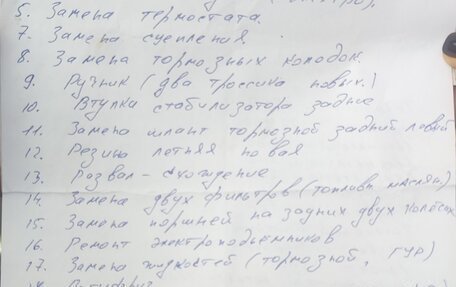 5. Замена термостата.
7. Замена сцепления.
8. Замена тормозных колодок.
9. Ручник (два троссика новых.)
10. Втулка стабилизатора задние
11. Замена шланг тормозной задний левый
12. Резина летняя новая
13. Розвал-схождение
14. Замена двух фильтров (топливн. маслян)
15. Замена поршней на задних двух колёсах
16. Ремонт электроподъемников
17. Замена жидкостей (тормозной, ГУР)